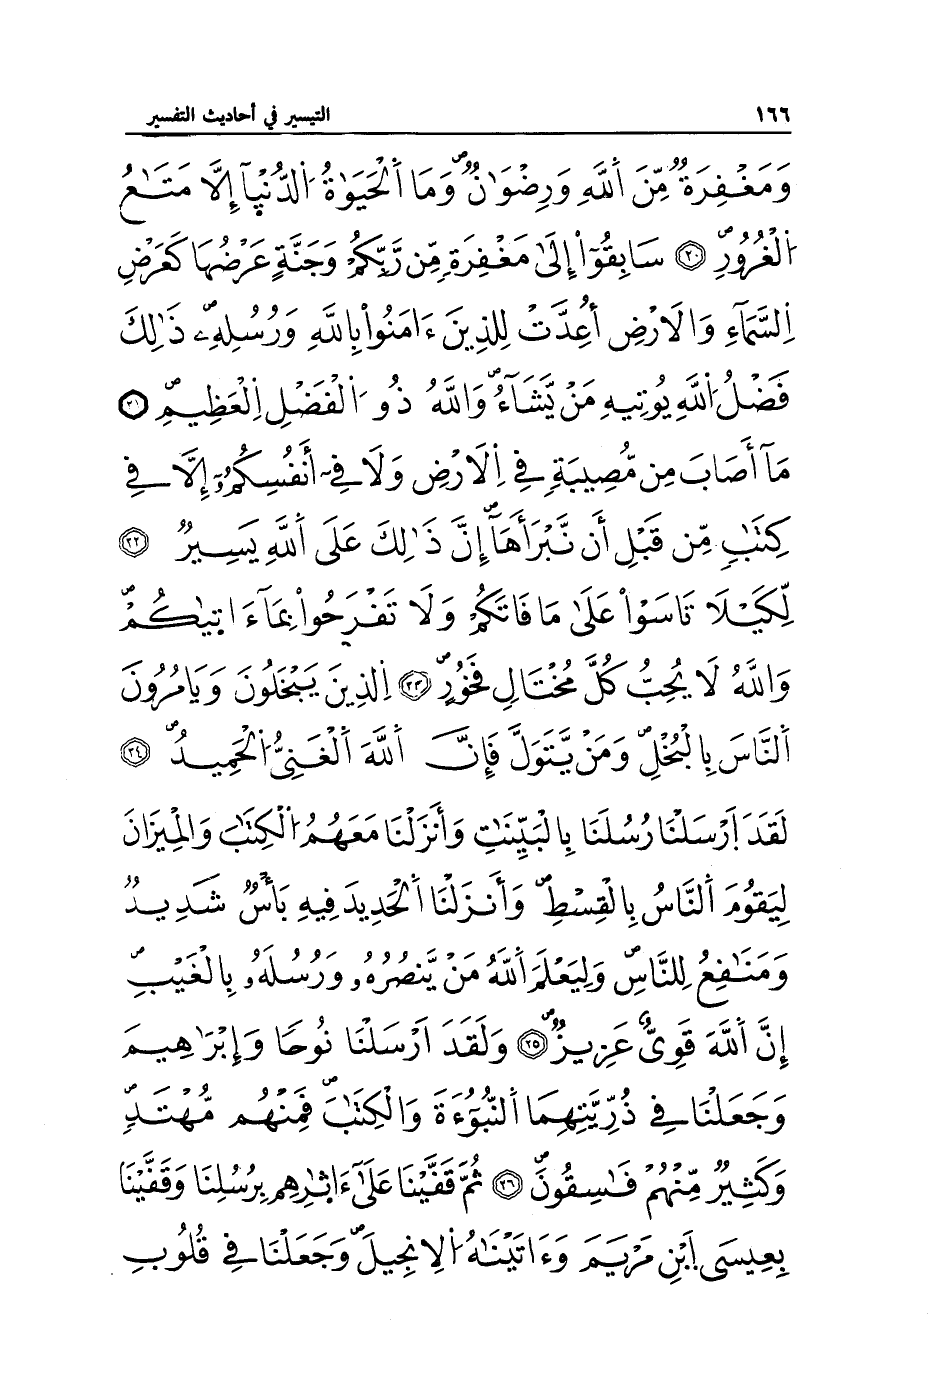 ١٦٦ التيسير في أحاديث التفسير
وَمَغْفِرَةٌ مِّنَ اَ۬للَّهِ وَرِضْوَٰنٌۖ وَمَا اَ۬لْحَيَوٰةُ اُ۬لدُّنْيَآ إِلَّا مَتَٰعُ
اُ۬لْغُرُورِۖ ٢٠ سَابِقُوٓاْ إِلَىٰ مَغْفِرَةٖ مِّن رَّبِّكُمْ وَجَنَّةٍ عَرْضُهَا كَعَرْضِ
اِ۬لسَّمَآءِ وَالَارْضِ أُعِدَّتْ لِلذِينَ ءَامَنُواْ بِاللَّهِ وَرُسُلِهِۦۖ ذَٰلِكَ
فَضْلُ اُ۬للَّهِ يُوتِيهِ مَنْ يَّشَآءُۖ وَاللَّهُ ذُو اُ۬لْفَضْلِ اِ۬لْعَظِيمِۖ ٢١
مَآ أَصَابَ مِن مُّصِيبَةٖ فِي اِ۬لَارْضِ وَلَا فِيٓ أَنفُسِكُمُۥٓ إِلَّا فِي
كِتَٰبٖ مِّن قَبْلِ أَن نَّبْرَأَهَآۖ إِنَّ ذَٰلِكَ عَلَى اَ۬للَّهِ يَسِيرٌ ٢٢
لِّكَيْلَا تَاسَوْاْ عَلَىٰ مَا فَاتَكُمْ وَلَا تَفْرَحُواْ بِمَآ ءَاتَيٰكُمْۖ
وَاللَّهُ لَا يُحِبُّ كُلَّ مُخْتَالٖ فَخُورٍۖ ٢٣ اِ۬لذِينَ يَبْخَلُونَ وَيَامُرُونَ
اَ۬لنَّاسَ بِالْبُخْلِۖ وَمَنْ يَّتَوَلَّ فَإِنَّ اَ۬للَّهَ اَ۬لْغَنِيُّ اُ۬لْحَمِيدُۖ ٢٤
لَقَدَ اَرْسَلْنَا رُسُلَنَا بِالْبَيِّنَٰتِ وَأَنزَلْنَا مَعَهُمُ اُ۬لْكِتَٰبَ وَالْمِيزَانَ
لِيَقُومَ اَ۬لنَّاسُ بِالْقِسْطِۖ وَأَنزَلْنَا اَ۬لْحَدِيدَ فِيهِ بَأْسٞ شَدِيدٞ
وَمَنَٰفِعُ لِلنَّاسِۖ وَلِيَعْلَمَ اَ۬للَّهُ مَنْ يَّنصُرُهُۥ وَرُسُلَهُۥ بِالْغَيْبِۖ
إِنَّ اَ۬للَّهَ قَوِيٌّ عَزِيزٌۖ ٢٥ وَلَقَدَ اَرْسَلْنَا نُوحاً وَإِبْرَٰهِيمَ
وَجَعَلْنَا فِي ذُرِّيَّتِهِمَا اَ۬لنُّبُوٓءَةَ وَالْكِتَٰبَۖ فَمِنْهُم مُّهْتَدٖۖ
وَكَثِيرٌ مِّنْهُمْ فَٰسِقُونَۖ ٢٦ ثُمَّ قَفَّيْنَا عَلَىٰٓ ءَاثٰ۪رِهِم بِرُسُلِنَا وَقَفَّيْنَا
بِعِيسَى اَ۪بْنِ مَرْيَمَ وَءَاتَيْنَٰهُ اُ۬لِانجِيلَۖ وَجَعَلْنَا فِي قُلُوبِ